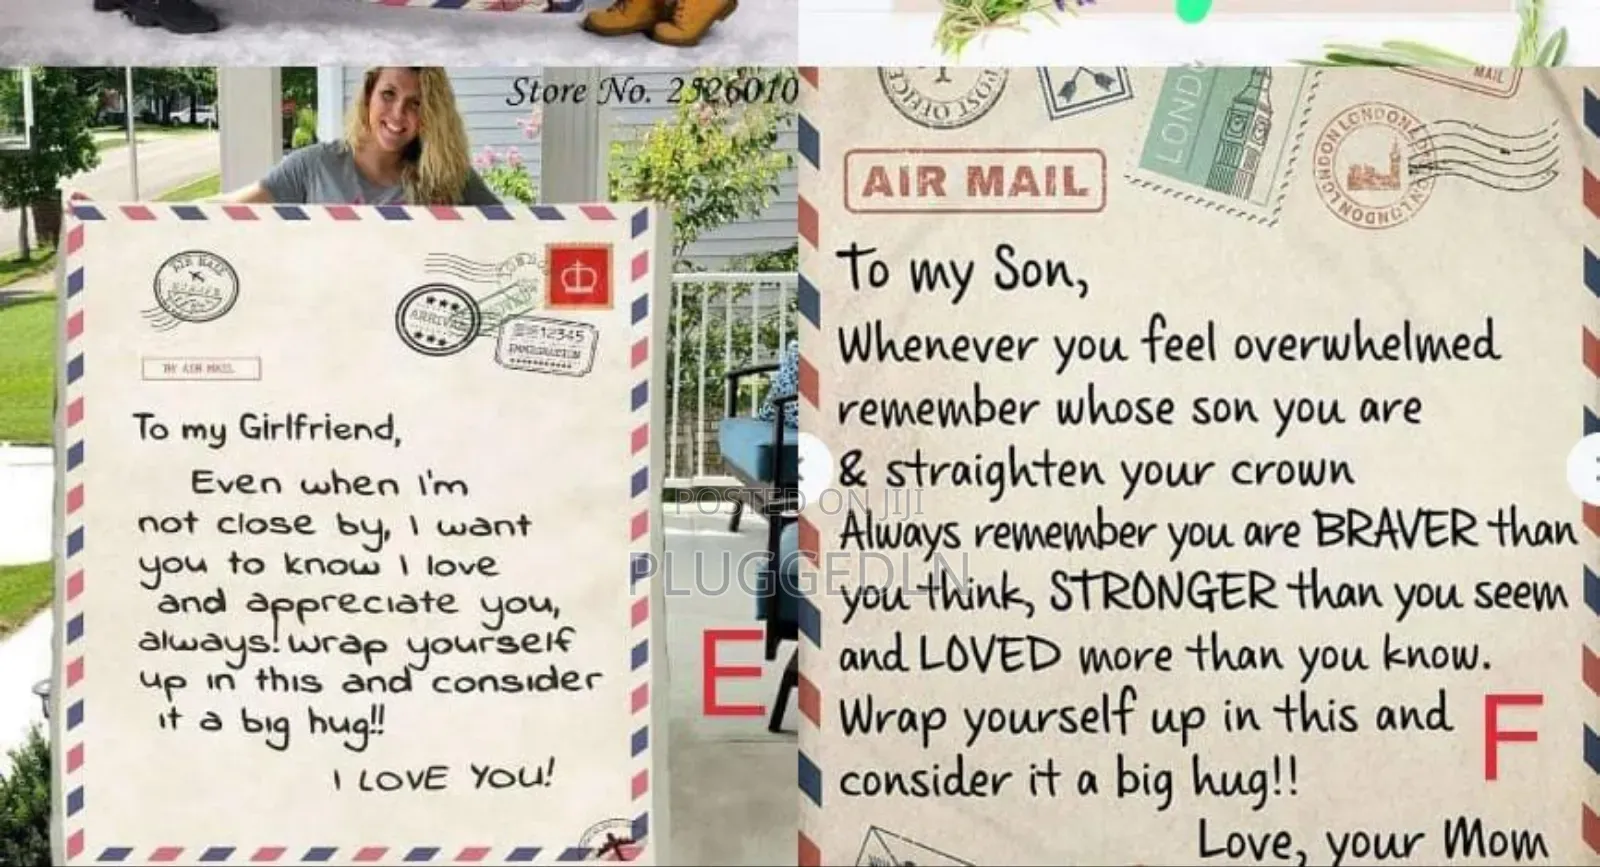 Store No. 2526010
AIR MAIL
ARRIVE
12345
IMMIGRATION
BY AIR MAIL
To my Girlfriend,
Even when I'm
not close by, I want
you to know I love
and appreciate you,
always! wrap yourself
up in this and consider
it a big hug!!
I LOVE YOU!
E
POST OFFICE
LONDO
MAIL
LONDON LONDON LONDON LONDON
AIR MAIL
To my Son,
Whenever you feel overwhelmed
remember whose son you are
& straighten your crown
Always remember you are BRAVER than
you think, STRONGER than you seem
and LOVED more than you know.
Wrap yourself up in this and
consider it a big hug!!
Love, your Mom
F
POSTED ON JIJI
PLUGGEDLN